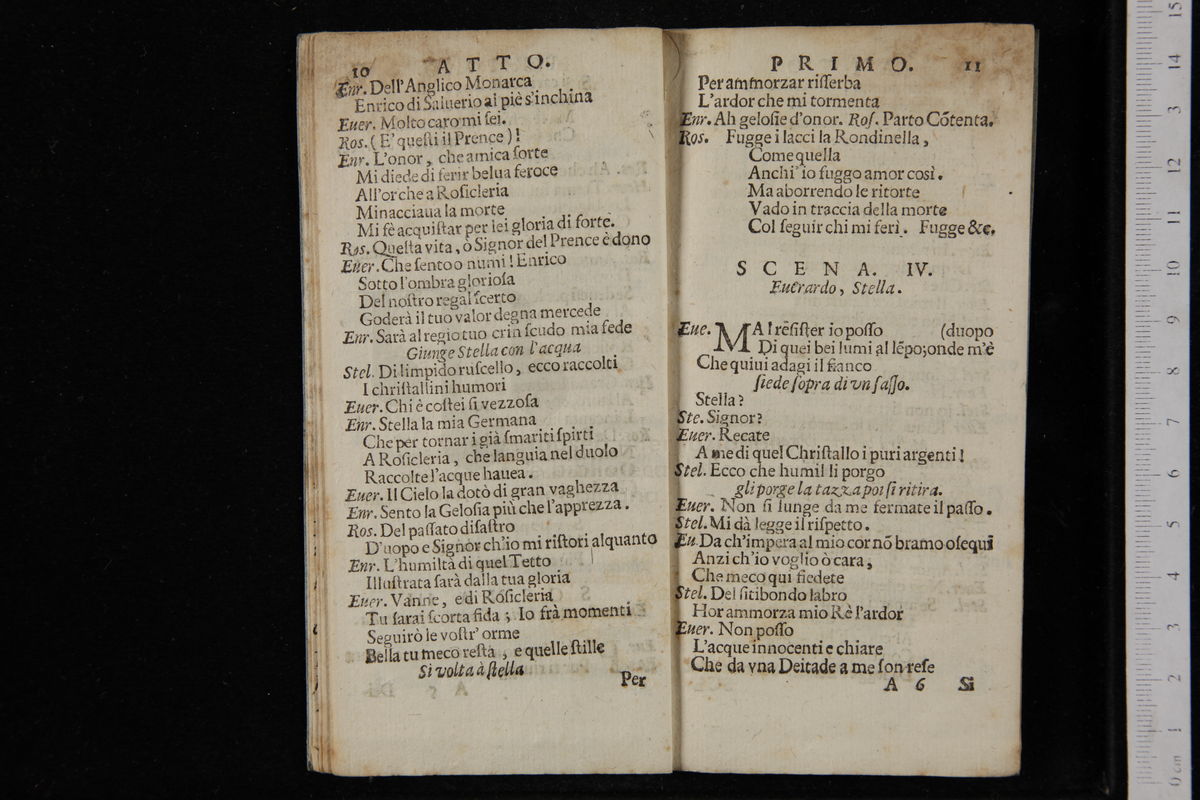 10 ATTO.
Enr. Dell'Anglico Monarca
Enrico di Saluerio ai piè s'inchina
Euer. Molto caro mi sei.
Ros. ( E' questi il Prence ) !
Enr. L'onor , che amica sorte
Mi diede di ferir belua feroce
All'or che a Rosicleria
Minacciaua la morte
Mi fè acquistar per lei gloria di forte.
Ros. Questa vita , ò Signor del Prence è dono
Euer. Che sento o numi ! Enrico
Sotto l'ombra gloriosa
Del nostro regal scerto
Goderà il tuo valor degna mercede
Enr. Sarà al regio tuo crin scudo mia fede
Giunge Stella con l'acqua
Stel. Di limpido ruscello , ecco raccolti
I christallini humori
Euer. Chi è costei sì vezzosa
Enr. Stella la mia Germana
Che per tornar i già smariti spirti
A Rosicleria , che languia nel duolo
Raccolte l'acque hauea .
Euer. Il Cielo la dotò di gran vaghezza
Enr. Sento la Gelosia più che l'apprezza .
Ros. Del passato disastro
D'uopo e Signor ch'io mi ristori alquanto
Enr. L'humiltà di quel Tetto
Illustrata sarà dalla tua gloria
Euer. Vanne , e di Rosicleria
Tu sarai scorta fida ; Io frà momenti
Seguirò le vostr' orme
Bella tu meco resta , e quelle stille
Si volta à stella
Per
PRIMO. 11
Per ammorzar risserba
L'ardor che mi tormenta
Enr. Ah gelosie d'onor. Ros. Parto Cōtenta.
Ros. Fugge i lacci la Rondinella ,
Come quella
Anchi' io fuggo amor così .
Ma aborrendo le ritorte
Vado in traccia della morte
Col seguir chi mi ferì . Fugge &c.
SCENA. IV.
Euerardo , Stella .
Eue. MA I resister io posso (duopo
Di quei bei lumi al lēpo;onde m'è
Che quiui adagi il fianco
siede sopra di vn sasso.
Stella ?
Ste. Signor ?
Euer. Recate
A me di quel Christallo i puri argenti !
Stel. Ecco che humil li porgo
gli porge la tazza poi si ritira.
Euer. Non si lunge da me fermate il passo .
Stel. Mi dà legge il rispetto .
Eu. Da ch'impera al mio cor nō bramo osequi
Anzi ch'io voglio ò cara ,
Che meco qui siedete
Stel. Del sitibondo labro
Hor ammorza mio Rè l'ardor
Euer. Non posso
L'acque innocenti e chiare
Che da vna Deitade a me son rese
A 6 Si